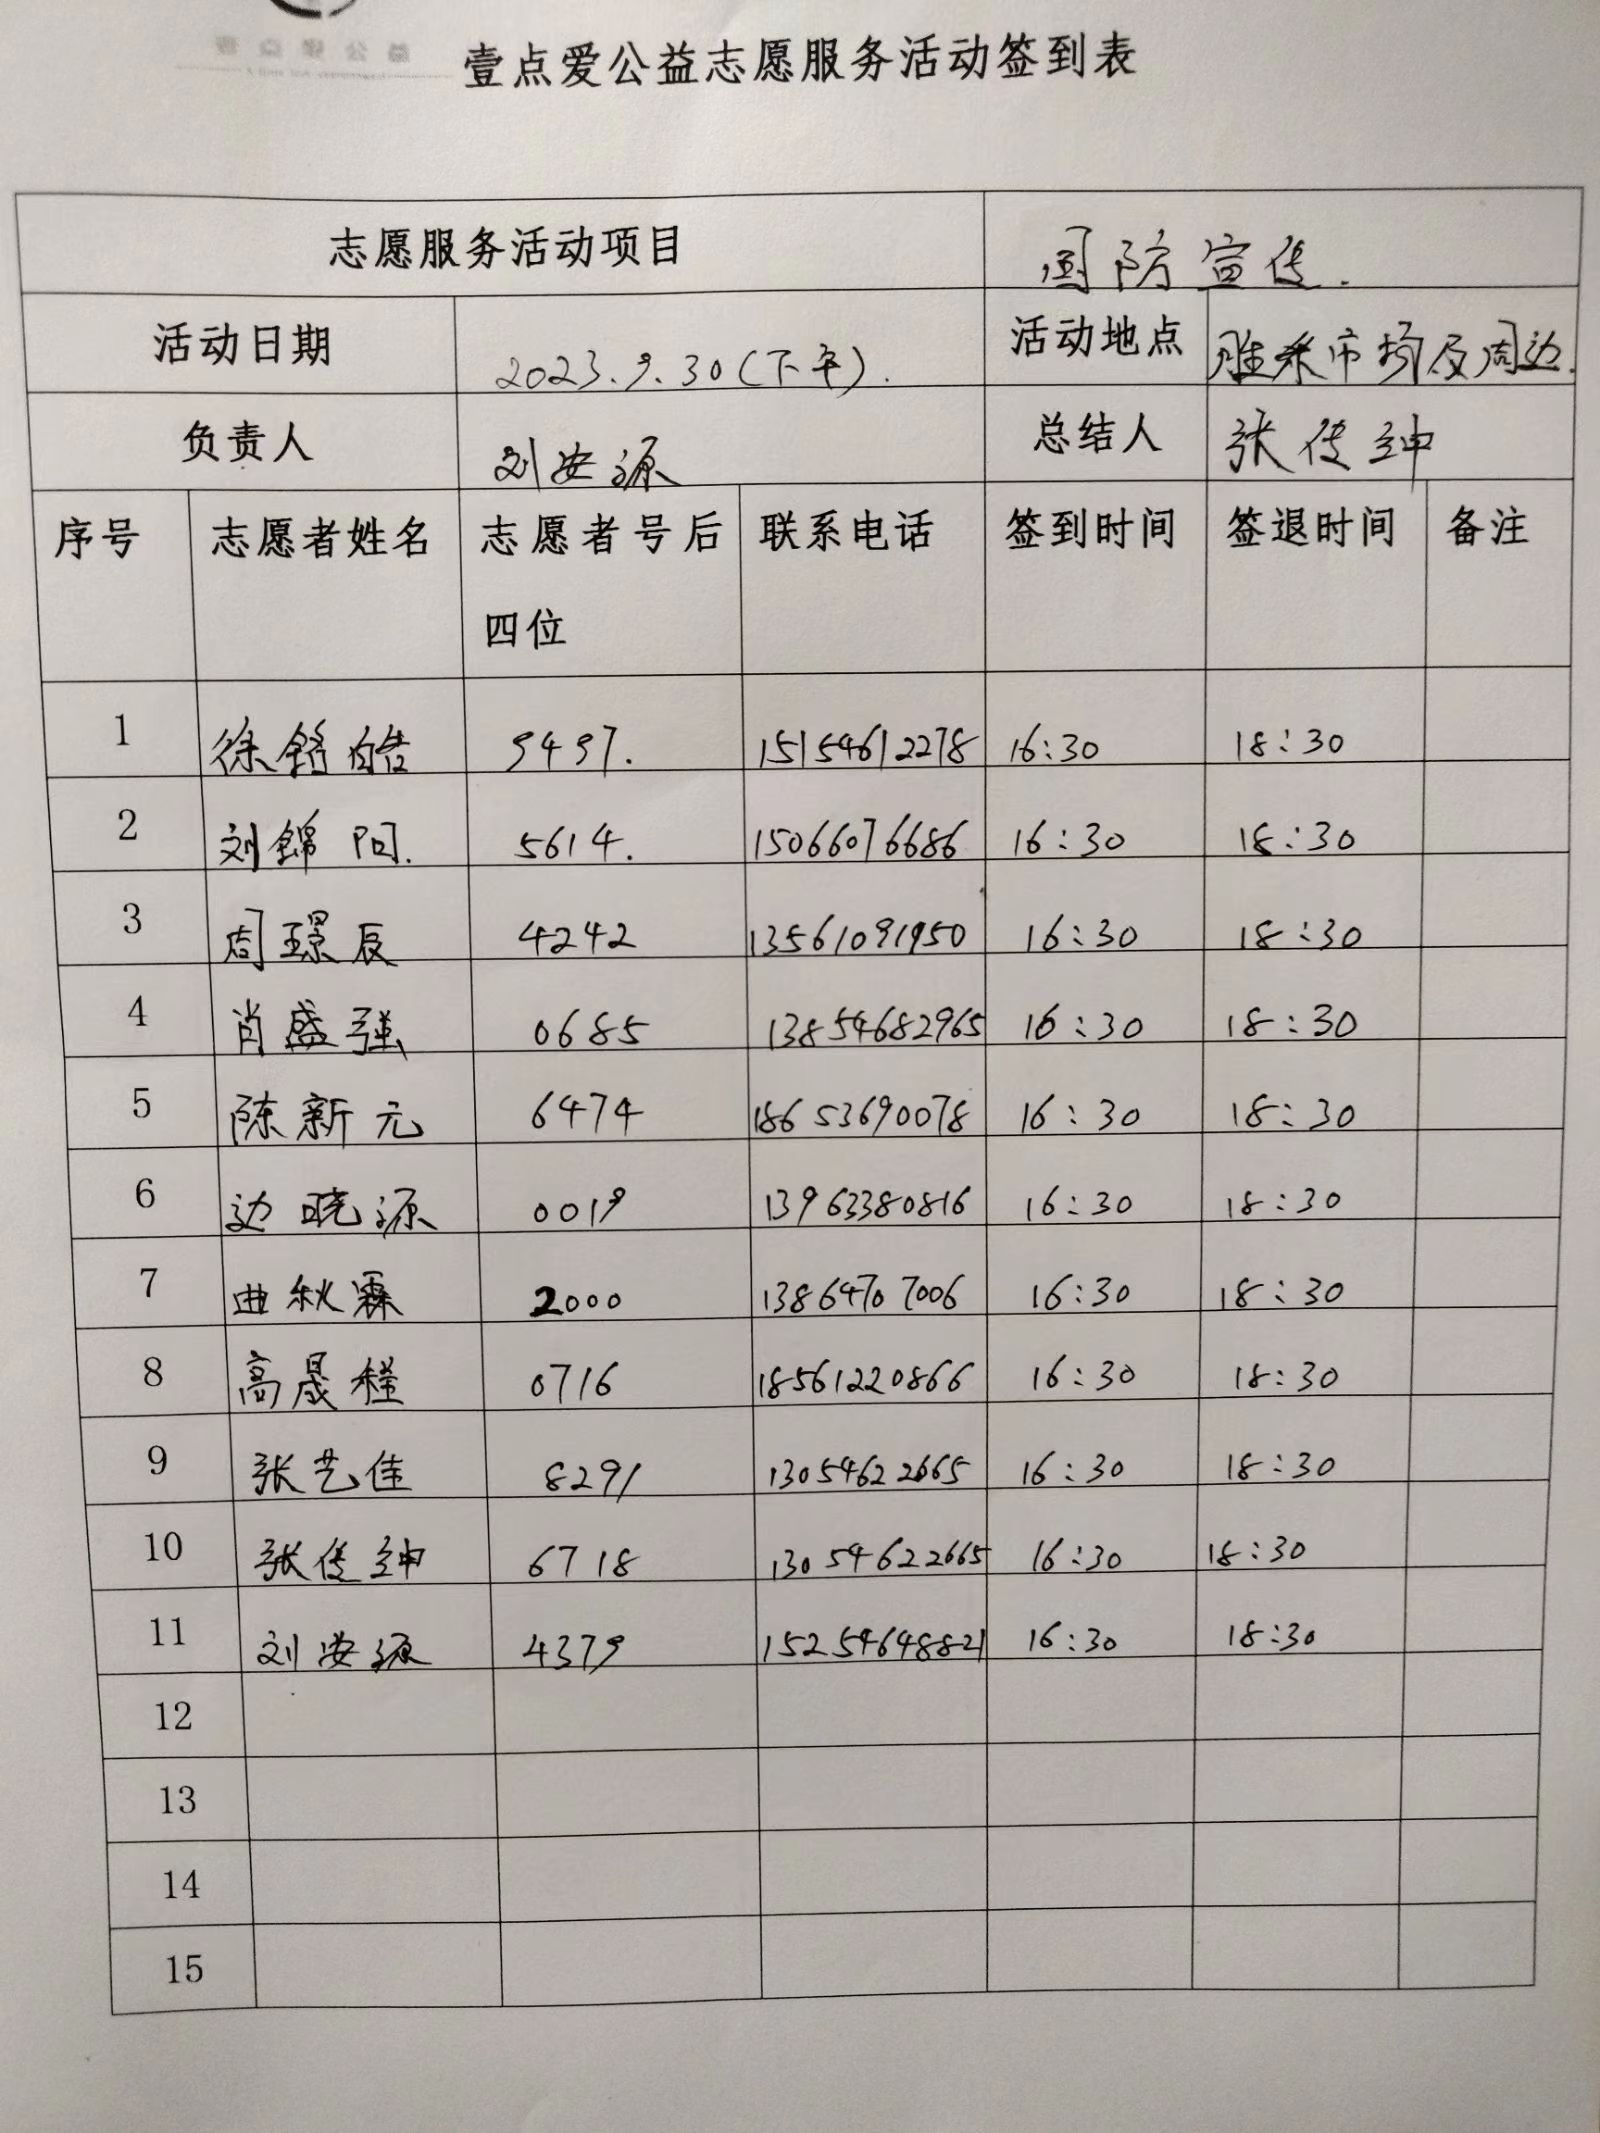 壹点爱公益志愿服务活动签到表
志愿服务活动项目 国防宣传.
活动日期 2023.9.30(下午). 活动地点 胜采市场及周边.
负责人 刘安源 总结人 张传绅
序号 志愿者姓名 志愿者号后 联系电话 签到时间 签退时间 备注
四位
1 徐铭皓 9497. 15154612278 16:30 18:30
2 刘锦阳. 5614. 15066076686 16:30 18:30
3 周璟辰 4242 13561091950 16:30 18:30
4 肖盛强 0685 13854682965 16:30 18:30
5 陈新元 6474 18653690078 16:30 18:30
6 边晓源 0019 13963380816 16:30 18:30
7 曲秋霖 2000 13864707006 16:30 18:30
8 高晟程 0716 18561220866 16:30 18:30
9 张艺佳 8291 13054622665 16:30 18:30
10 张传绅 6718 13054622665 16:30 18:30
11 刘安源 4379 15254648821 16:30 18:30
12
13
14
15